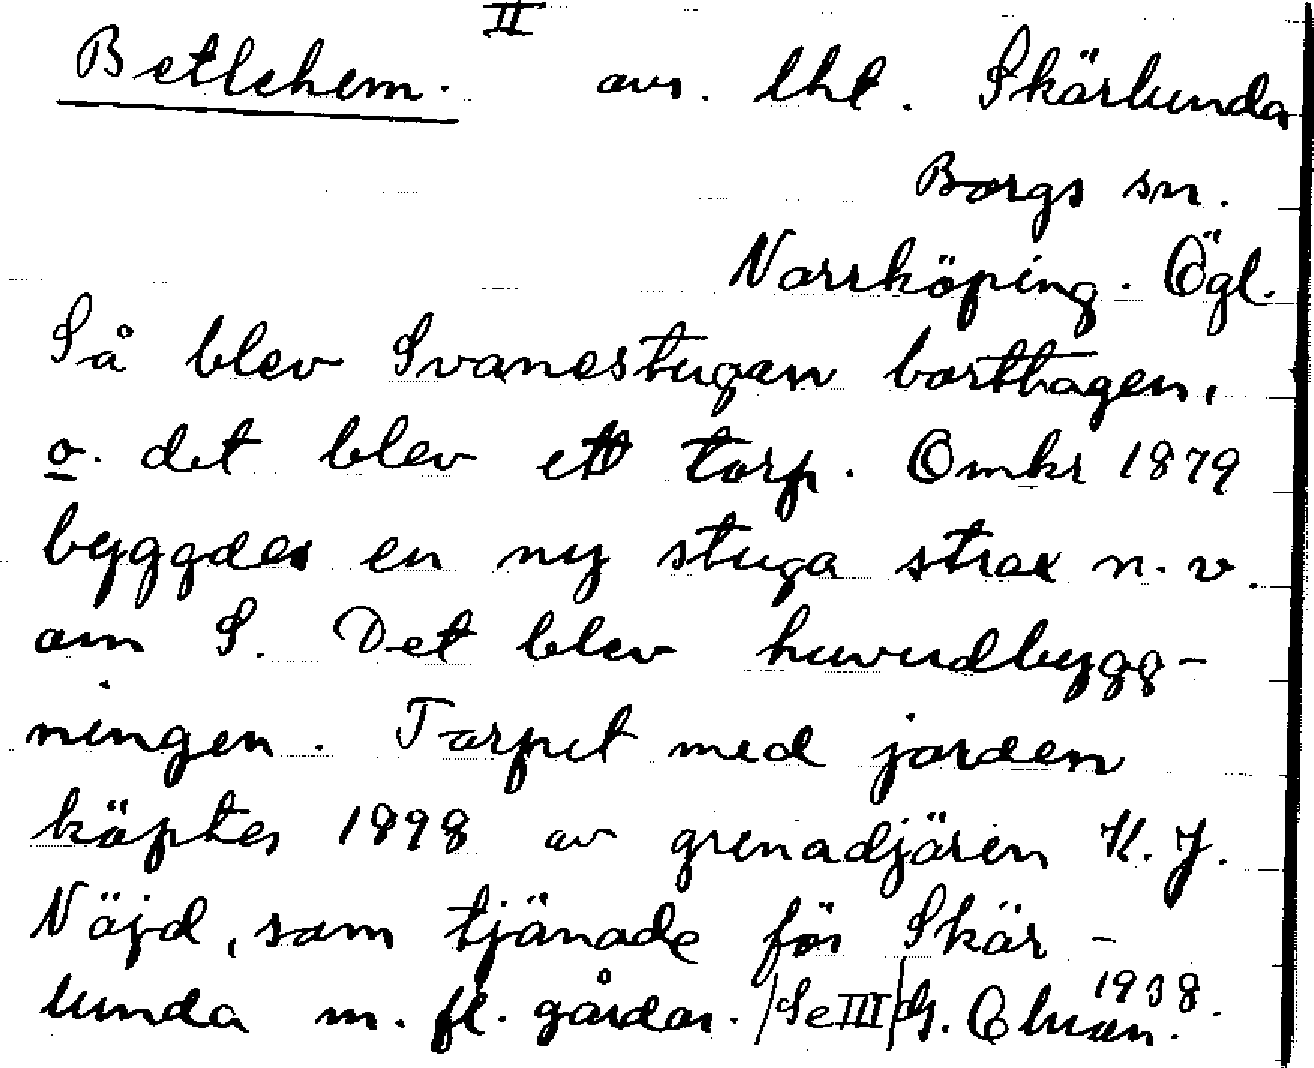 II
Betlehem. avs. lht. Skärlunda
Borgs sn.
Norrköping. Ögl.
Så blev Svanestugan borttagen,
o. det blev ett torp. Omkr 1879
byggdes en ny stuga strax n. v.
om S. Det blev huvudbygg-
ningen. Torpet med jorden
köptes 1898 av grenadjären K. J.
Nöjd, som tjänade för Skär-
lunda m. fl. gårdar. /Se III/ G. 1938.